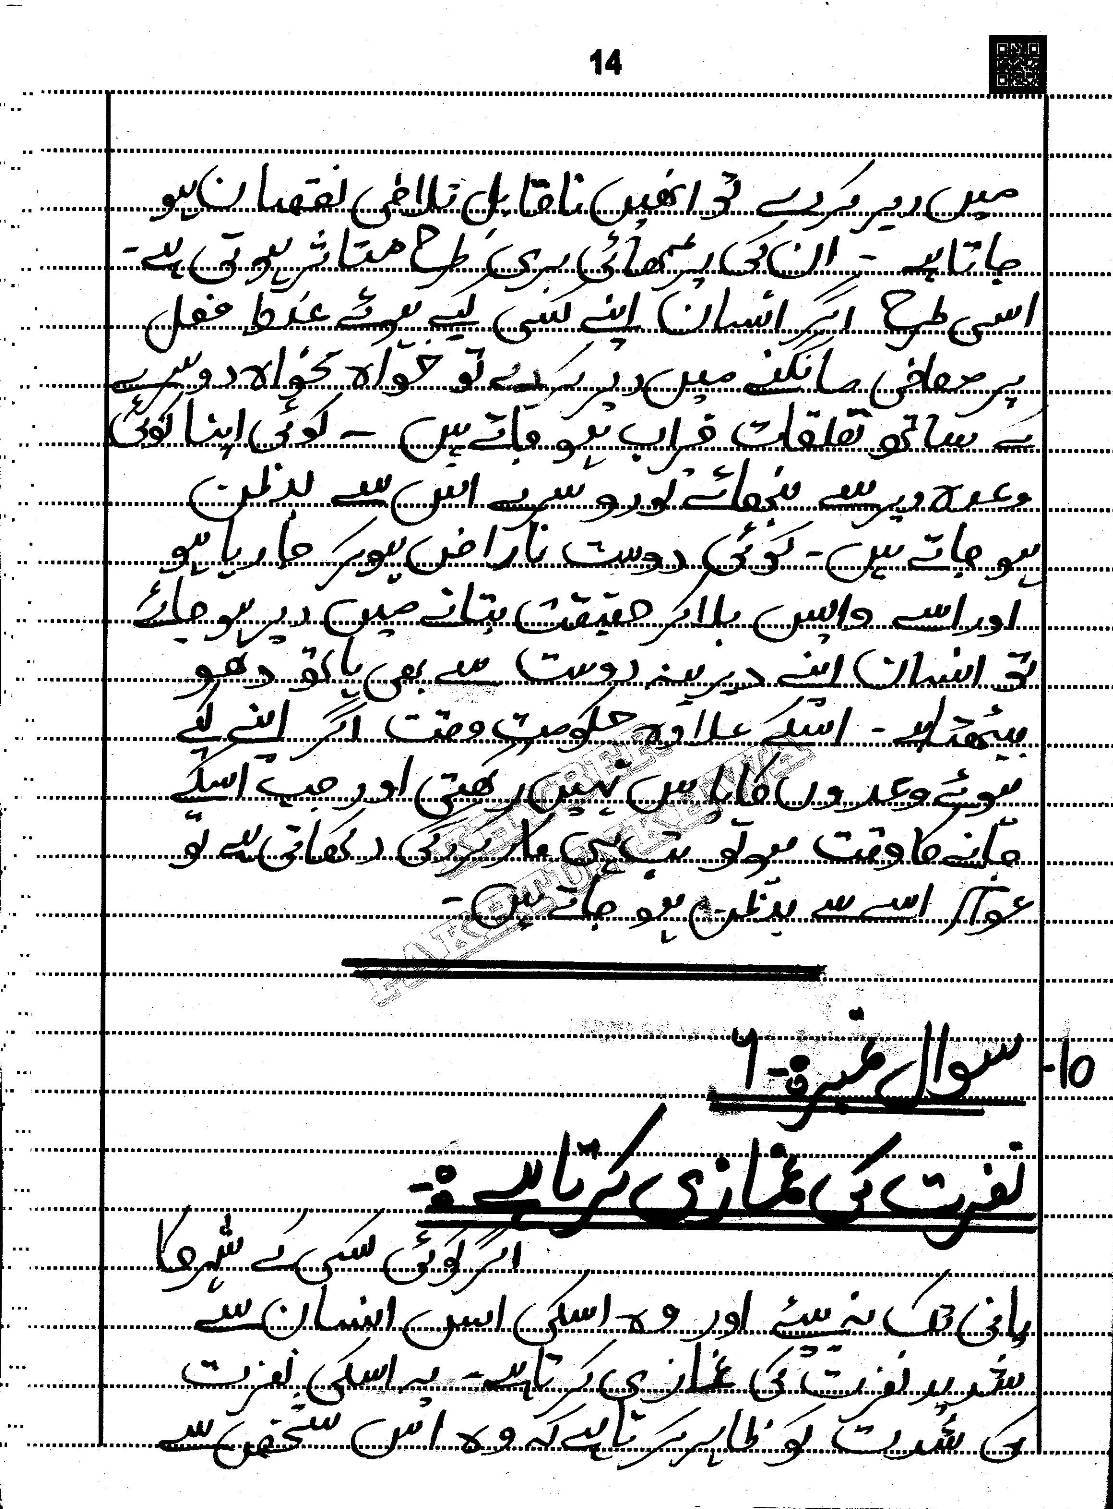 14
میں دیر کر دے تو انھیں ناقابل تلافی نقصان ہو
جاتا ہے ۔ ان کی پڑھائی بری طرح متاثر ہوتی ہے۔
اسی طرح اگر انسان اپنے کسی کیے ہوئے غلط فعل
پر معافی مانگنے میں دیر کر دے تو خواہ مخواہ دوسرے
کے ساتھ تعلقات خراب ہو جاتے ہیں ۔ کوئی اپنا کوئی
وعدہ دیر سے نبھائے تو دوسرے اس سے بدظن
ہو جاتے ہیں۔ کوئی دوست ناراض ہو کر جا رہا ہو
اور اسے واپس بلا کر حقیقت بتانے میں دیر ہو جائے
تو انسان اپنے دیرینہ دوست سے بھی ہاتھ دھو
بیٹھتا ہے۔ اسکے علاوہ حکومت وقت اگر اپنے کیے
ہوئے وعدوں کا پاس نہیں رکھتی اور جب اسکے
جانے کا وقت ہو تو تب ہی کارکردگی دکھاتی ہے تو
عوام اسے سے بدظن ہو جاتے ہیں۔
10-
سوال نمبر 6:-
نفرت کی غمازی کرتا ہے :-
اگر کوئی کسی کے شہر کا
پانی تک نہ پیئے اور وہ اسکی اس انسان سے
شدید نفرت کی غمازی کرتا ہے۔ یہ اسکی نفرت
کی شدت کو ظاہر کرتا ہے کہ وہ اس شخص سے